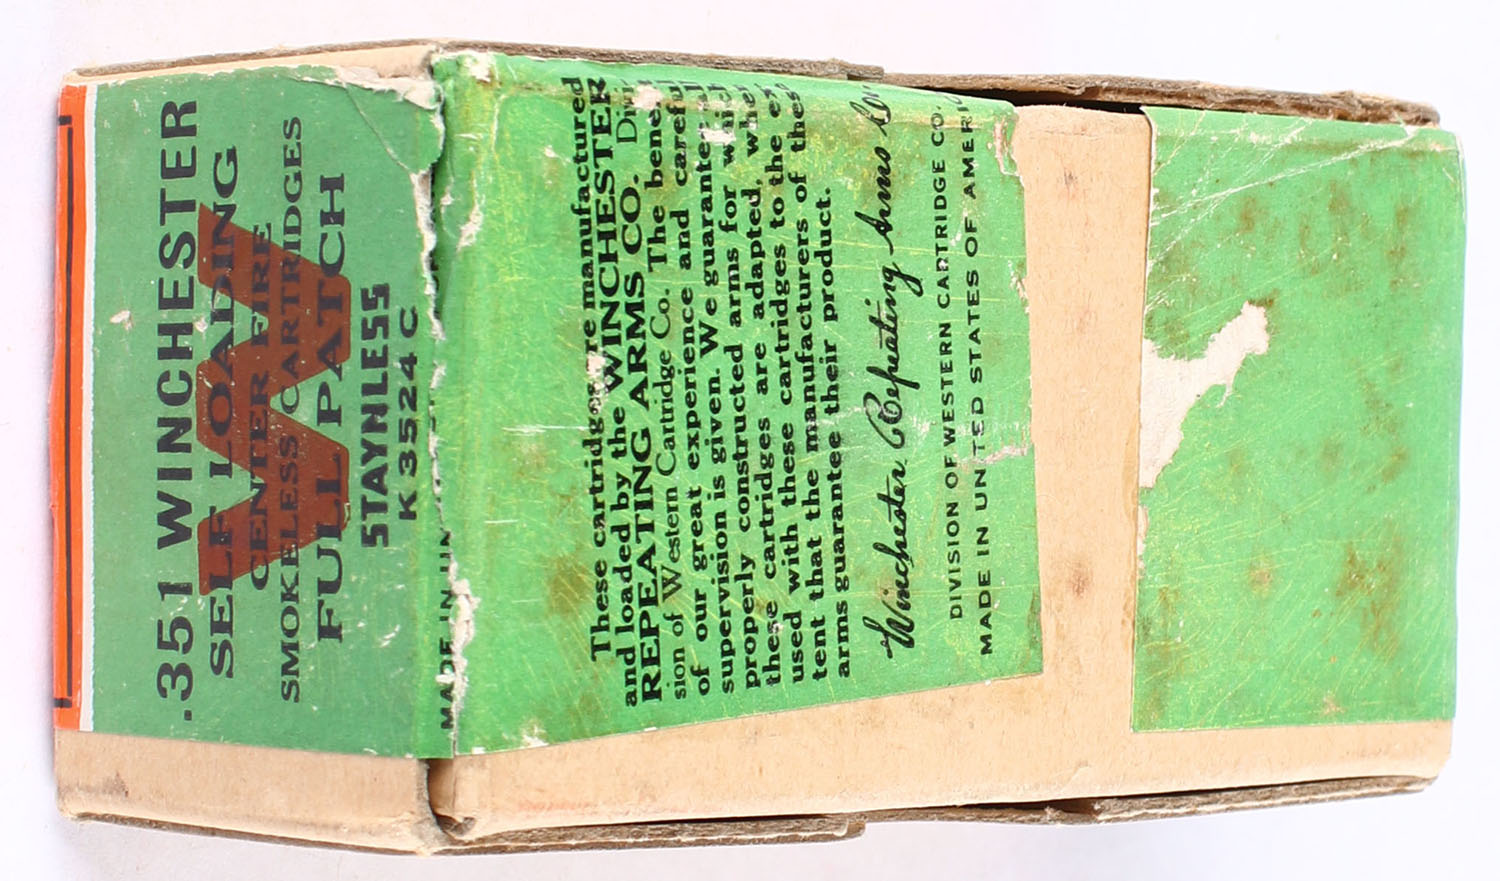 .351 WINCHESTER
SELF LOADING
CENTER FIRE
SMOKELESS CARTRIDGES
FULL PATCH
STAYNLESS
K3524C
MADE IN
These cartridges are manufactured
and loaded by the WINCHESTER
REPEATING ARMS CO. Divi
sion of Western Cartridge Co. The benefi
of our great experience and careful
supervision is given. We guarantee
properly constructed arms for which
these cartridges are adapted, when
used with these cartridges to the ex
tent that the manufacturers of these
arms guarantee their product.
Winchester Repeating Arms Co
DIVISION OF WESTERN CARTRIDGE CO.
MADE IN UNITED STATES OF AMERIC